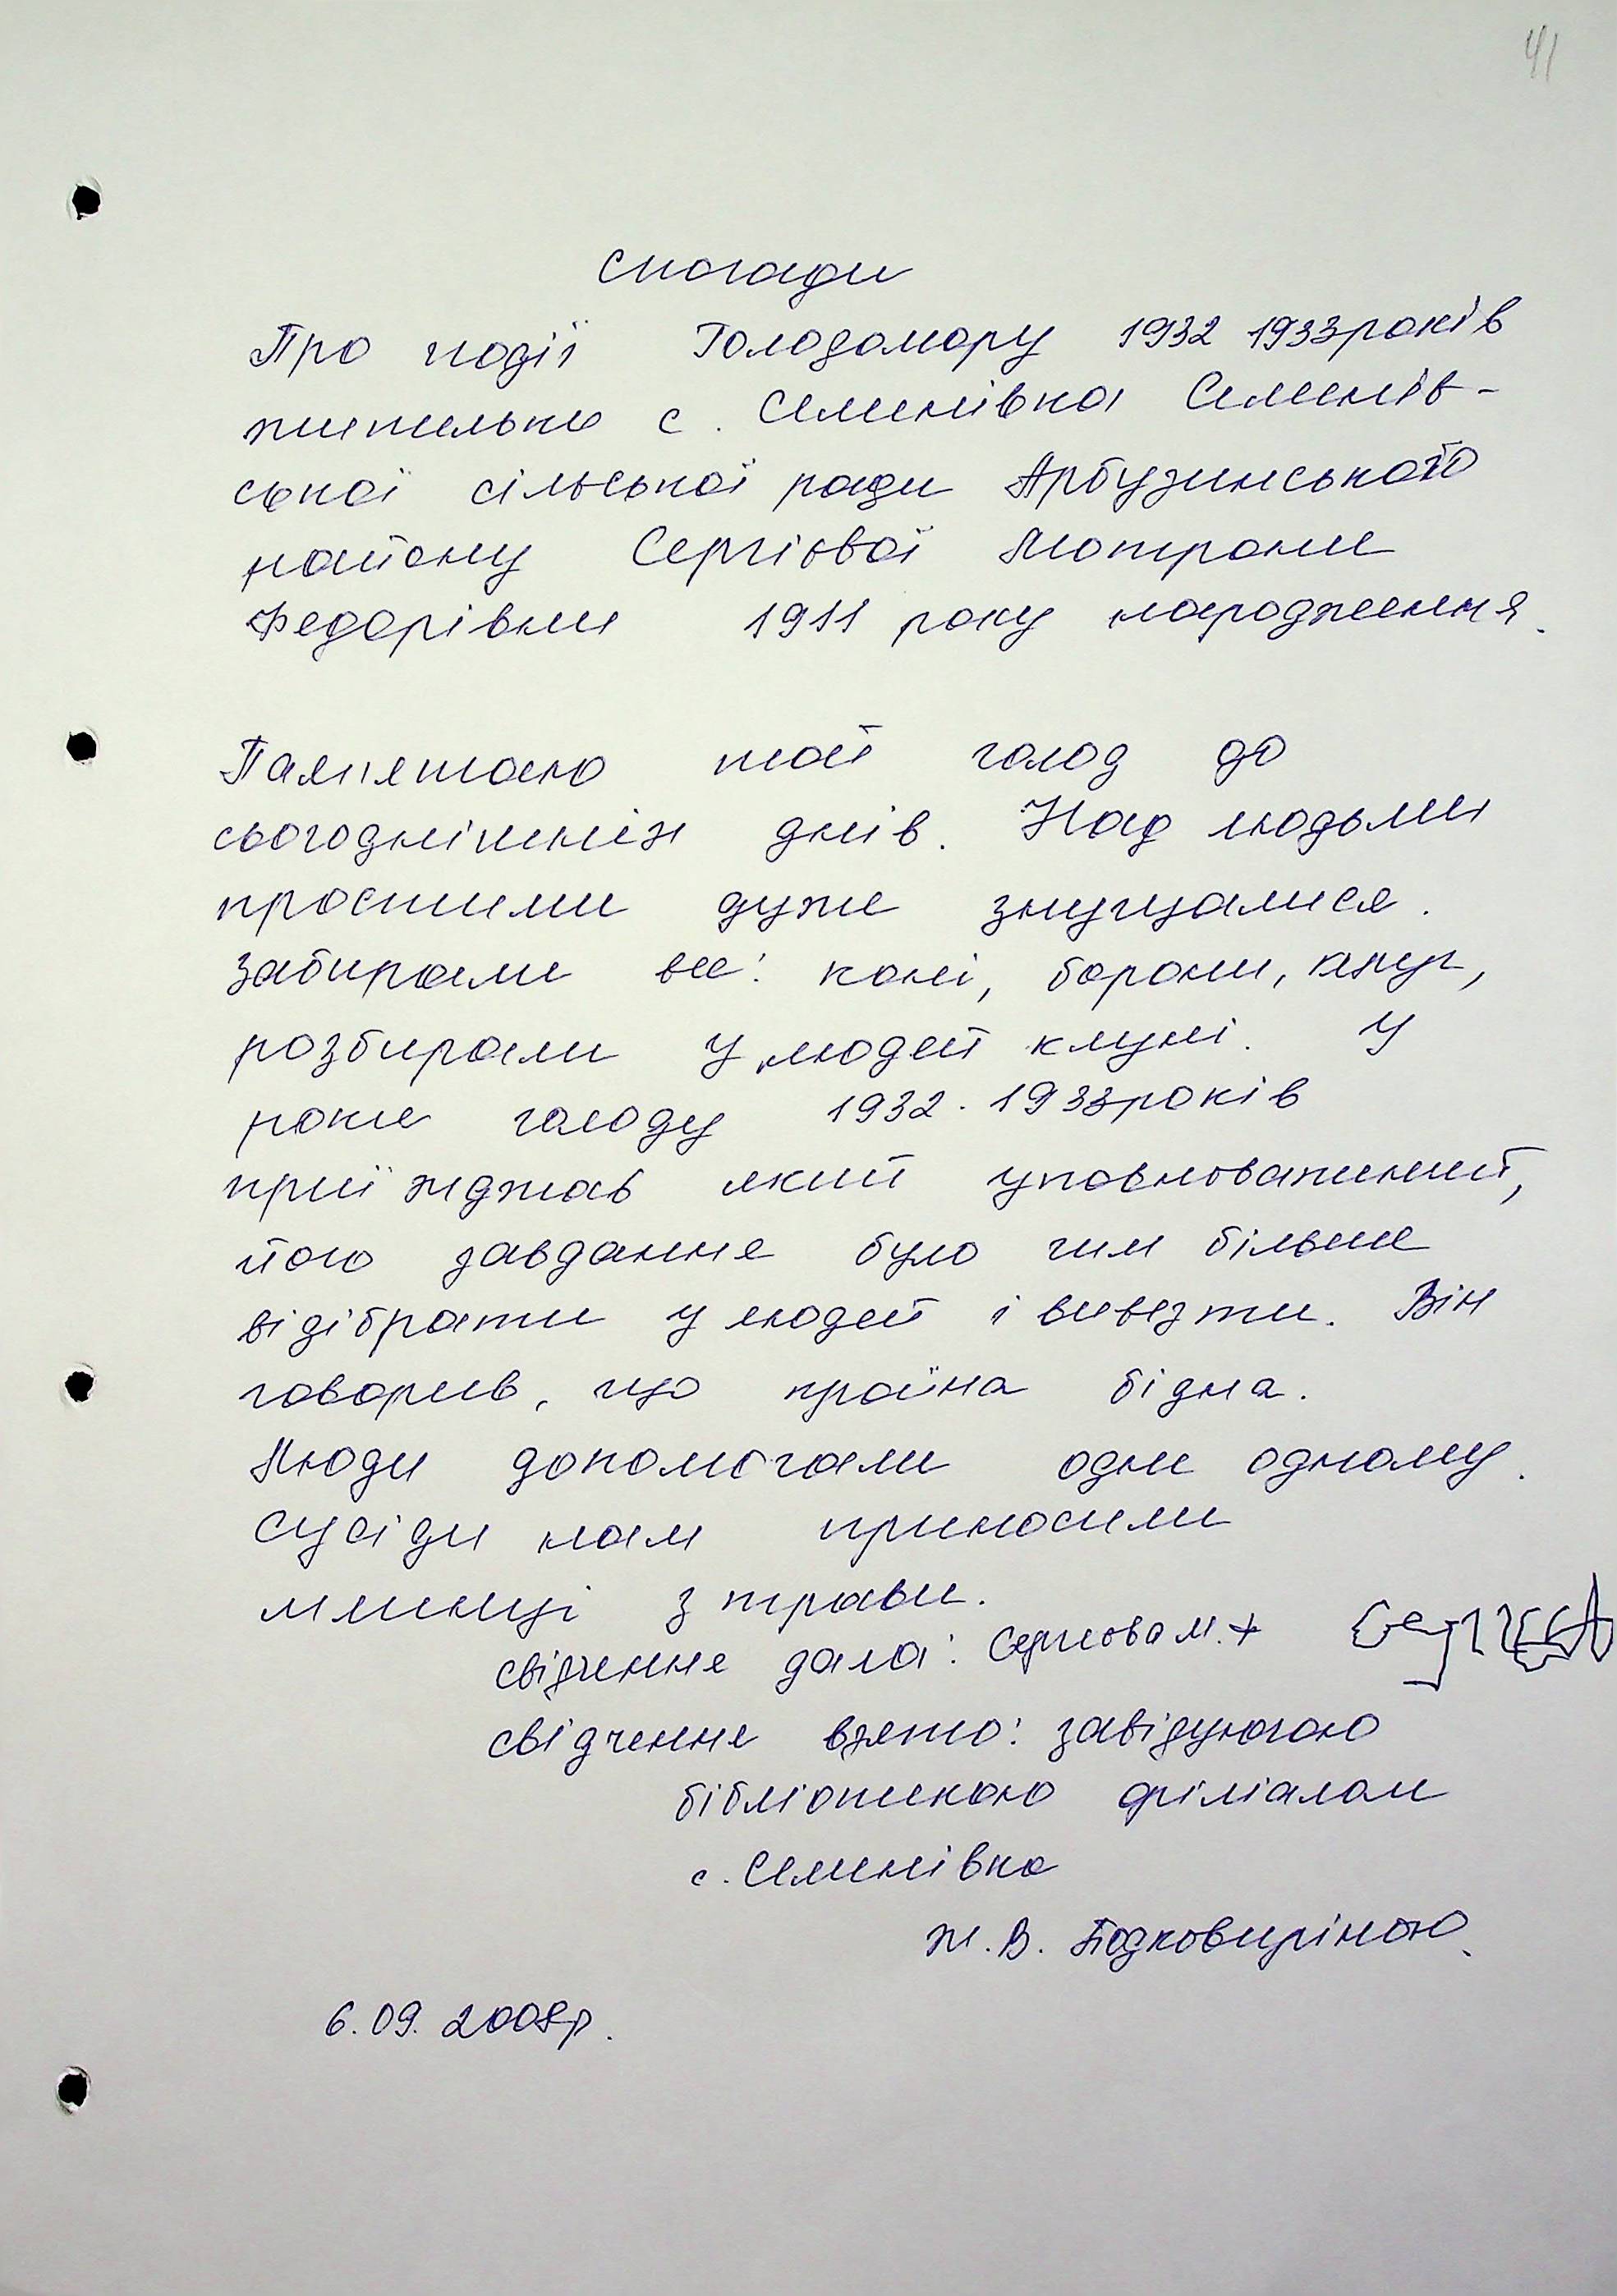 41
Спогади
Про події Голодомору 1932 1933років
жительки с. Семенівка Семенів-
ської сільської ради Арбузинського
району Сергієвої Мотрони
Федорівни 1911 року народження.
Пам'ятаю той голод до
сьогоднішніх днів. Над людьми
простими дуже знущалися.
Забирали все: коні, борони, плуг,
розбирали у людей клуні. У
роки голоду 1932-1933років
приїжджав який уповноважений,
його завдання було чим більше
відібрати у людей і вивезти. Він
говорив, що країна бідна.
Люди допомогали одне одному.
Сусіди нам приносили
млинці з трави.
свідчення дала: Сергієва М. +
свідчення взято: завідуючою
бібліотекою філіалом
с. Семенівка
Ж. В. Подковиріною.
6.09. 2008р.